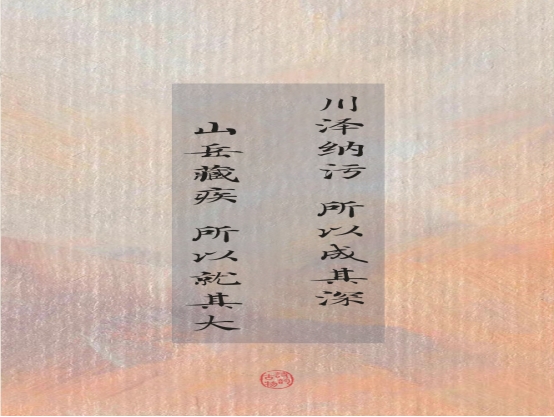 川泽纳污 所以成其深
山岳藏疾 所以就其大